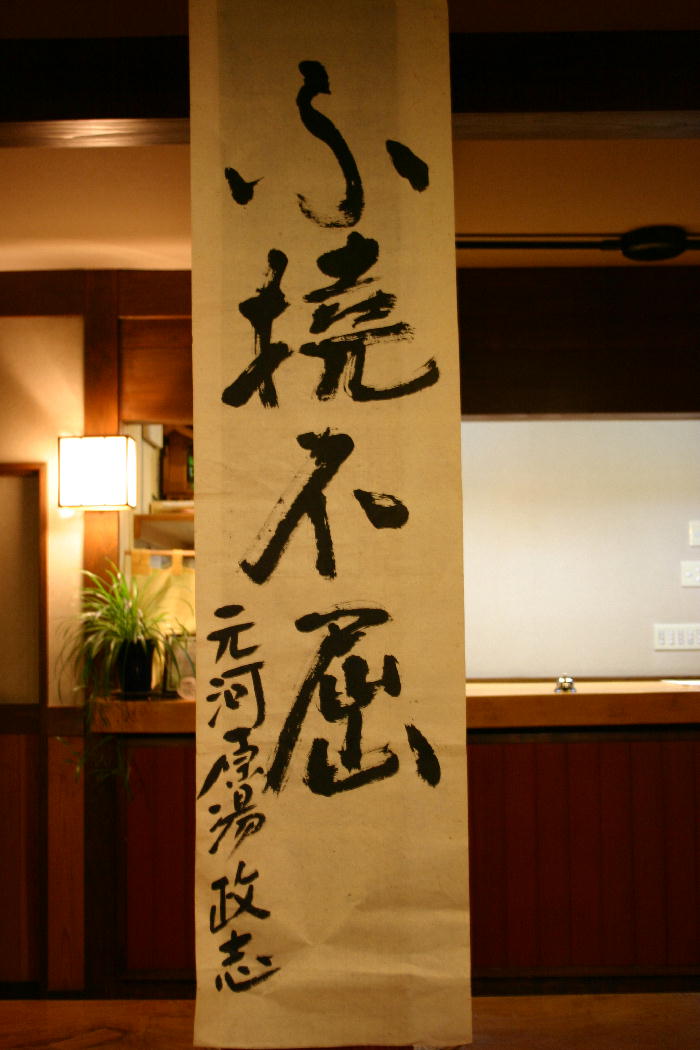 ふ撓不屈
元河原湯 政志